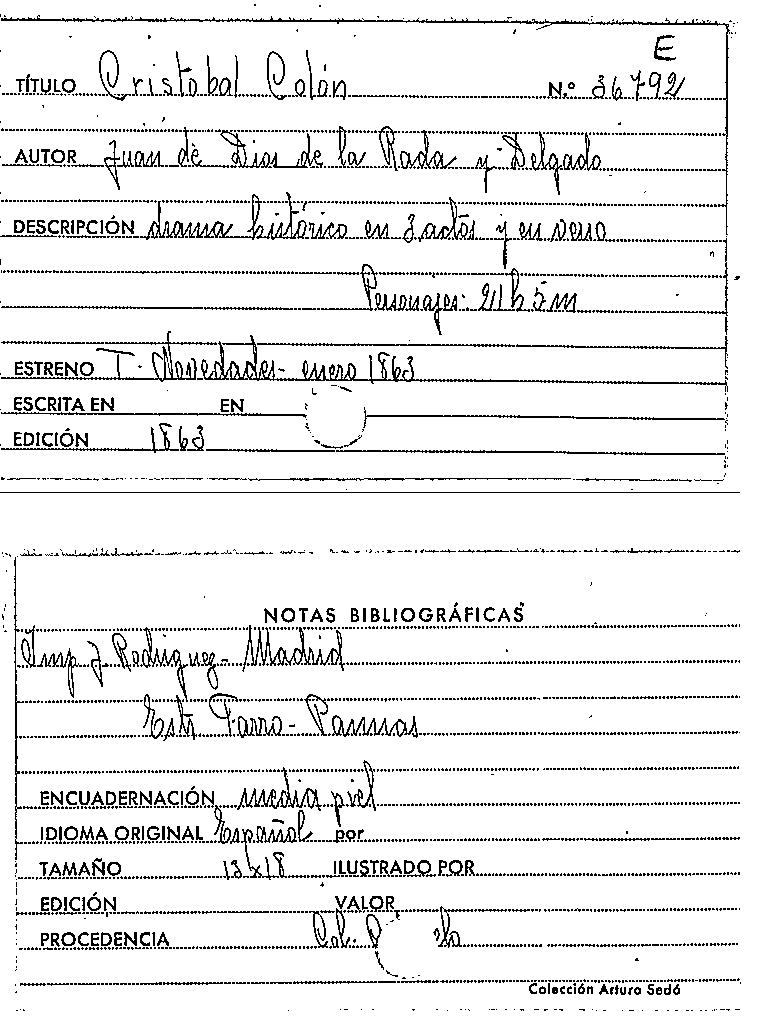 E
TÍTULO Cristobal Colón N.º 36792
AUTOR Juan de Dios de la Rada y Delgado
DESCRIPCIÓN drama histórico en 3 actos y en verso
Personajes: 21 h 5 m
ESTRENO T. Novedades - enero 1863
ESCRITA EN EN
EDICIÓN 1863
NOTAS BIBLIOGRÁFICAS
Imp J. Rodriguez - Madrid
Estr Farro -
ENCUADERNACIÓN media piel
IDIOMA ORIGINAL Español por
TAMAÑO 13x18 ILUSTRADO POR
EDICIÓN VALOR
PROCEDENCIA Col.
Colección Arturo Sedó